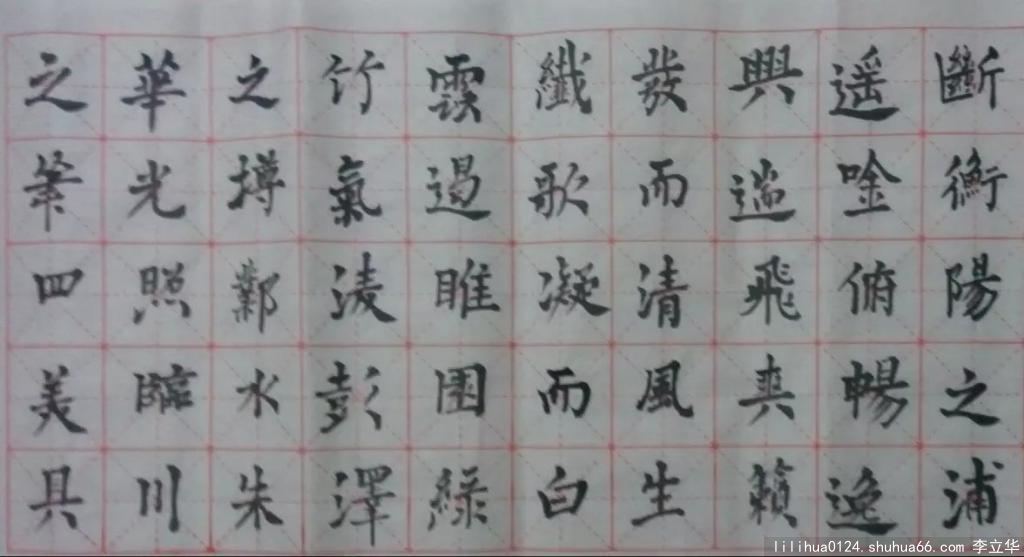 斷衡陽之浦
遥唫俯暢逸
興遄飛爽籟
發而清風生
纖歌凝而白
雲遏睢園綠
竹氣淩彭澤
之樽鄴水朱
華光照臨川
之筆四美具
lilihua0124.shuhua66.com 李立华